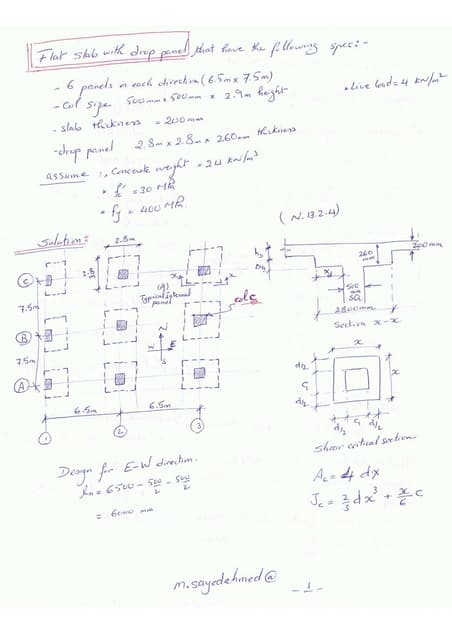 Flat slab with drop panel, that have the following spec:-
- 6 panels in each direction (6.5m x 7.5m)
- Col size 500mm x 500mm x 2.9m height
* Live load = 4 kN/m²
- slab thickness = 200mm
- drop panel 2.8m x 2.8m x 260mm thickness
assume : Concrete weight = 24 kN/m³
* f'c = 30 MPa
* fy = 400 MPa
(N.13.2.4)
Solution:
2.8m
2.8
C
7.5m
B
7.5m
A
Typical internal panel
x
x
cols
N
W
E
S
6.5m
6.5m
1
2
3
hs
260 mm
200mm
xd
500 mm SQ.
2800mm
Section x-x
x
x
d/2
C1
d/2
d/2
C1
d/2
Shear critical section
Design for E-W direction.
ln = 6500 - 500/2 - 500/2
= 6000 mm
Ac = 4 dx
Jc = 2/3 dx³ + x/6 c
m.sayedahmed@
- 1 -